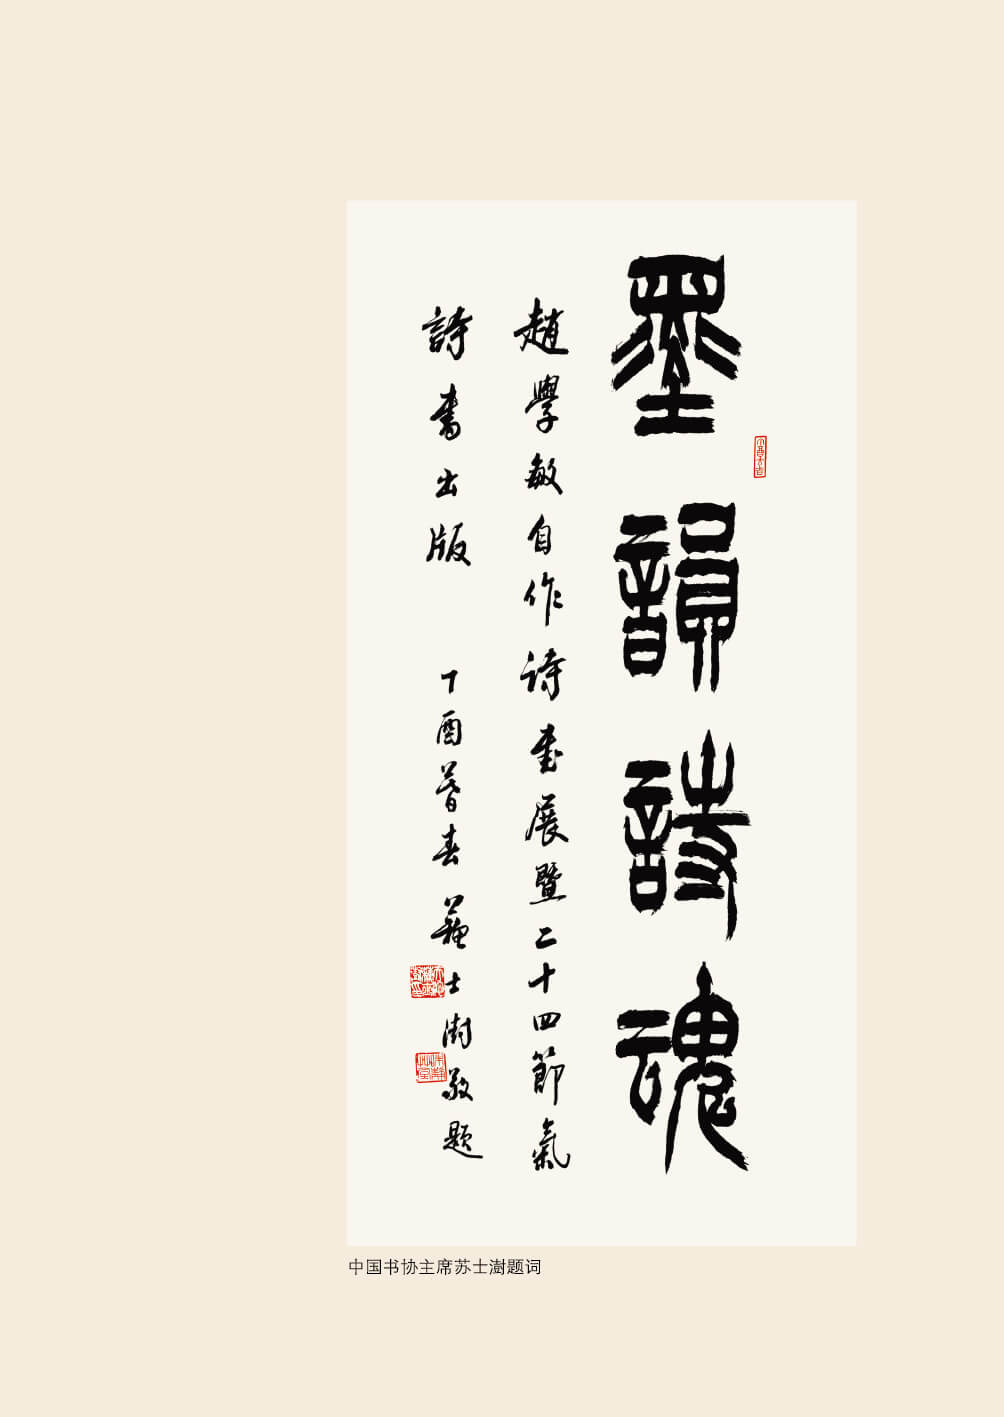 墨韻詩魂
趙學敏自作诗書展暨二十四節氣
詩書出版 丁酉暮春蘇士澍敬題
中国书协主席苏士澍题词